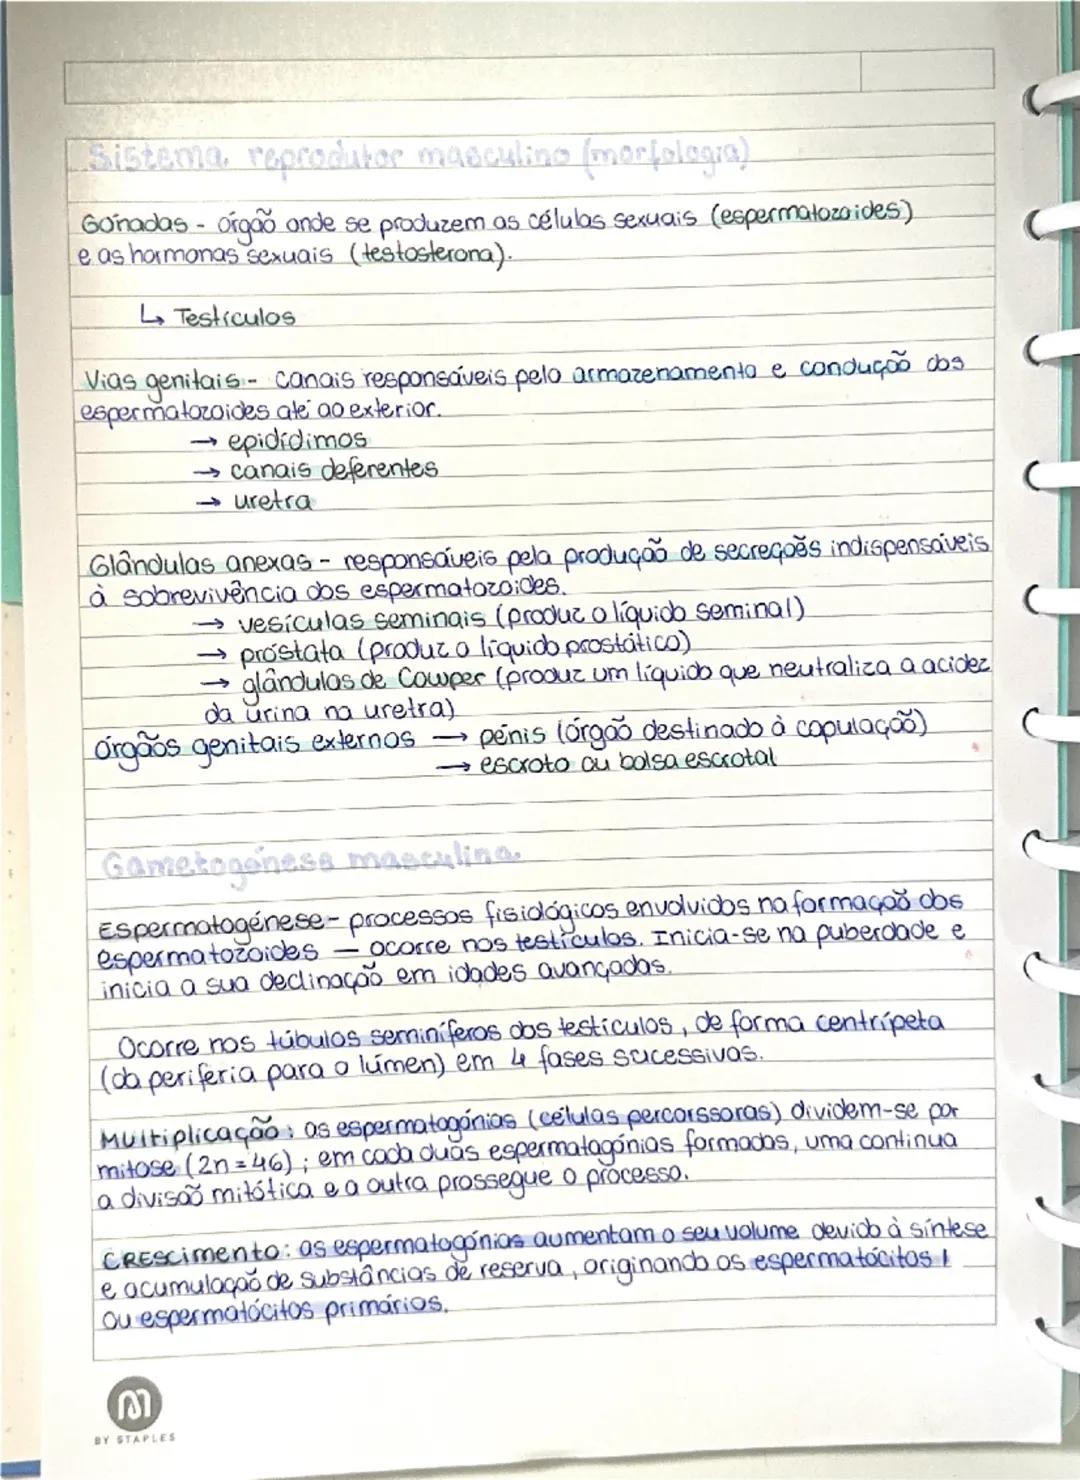 Sistema reprodutor masculino (morfologia)
Gónadas - órgão onde se produzem as células sexuais (espermatozoides)
e as hormonas sexuais (testosterona).
↳ Testículos
Vias genitais - canais responsáveis pelo armazenamento e condução dos
espermatozoides até ao exterior.
→ epidídimos
→ canais deferentes
→ uretra
Glândulas anexas - responsáveis pela produção de secreções indispensáveis
à sobrevivência dos espermatozoides.
→ vesículas seminais (produz o líquido seminal)
→ próstata (produz o líquido prostático)
→ glândulas de Cowper (produz um líquido que neutraliza a acidez
da urina na uretra)
órgãos genitais externos → pénis (órgão destinado à copulação)
→ escroto ou bolsa escrotal
Gametogénese masculina
Espermatogénese - processos fisiológicos envolvidos na formação dos
espermatozoides — ocorre nos testículos. Inicia-se na puberdade e
inicia a sua declinação em idades avançadas.
Ocorre nos túbulos seminíferos dos testículos, de forma centrípeta
(da periferia para o lúmen) em 4 fases sucessivas.
Multiplicação: as espermatogónias (células percorssoras) dividem-se por
mitose (2n=46); em cada duas espermatagónias formadas, uma continua
a divisão mitótica e a outra prossegue o processo.
CRESCimento: as espermatogónias aumentam o seu volume devido à síntese
e acumulação de substâncias de reserva, originando os espermatócitos I
ou espermatócitos primários.
M
BY STAPLES